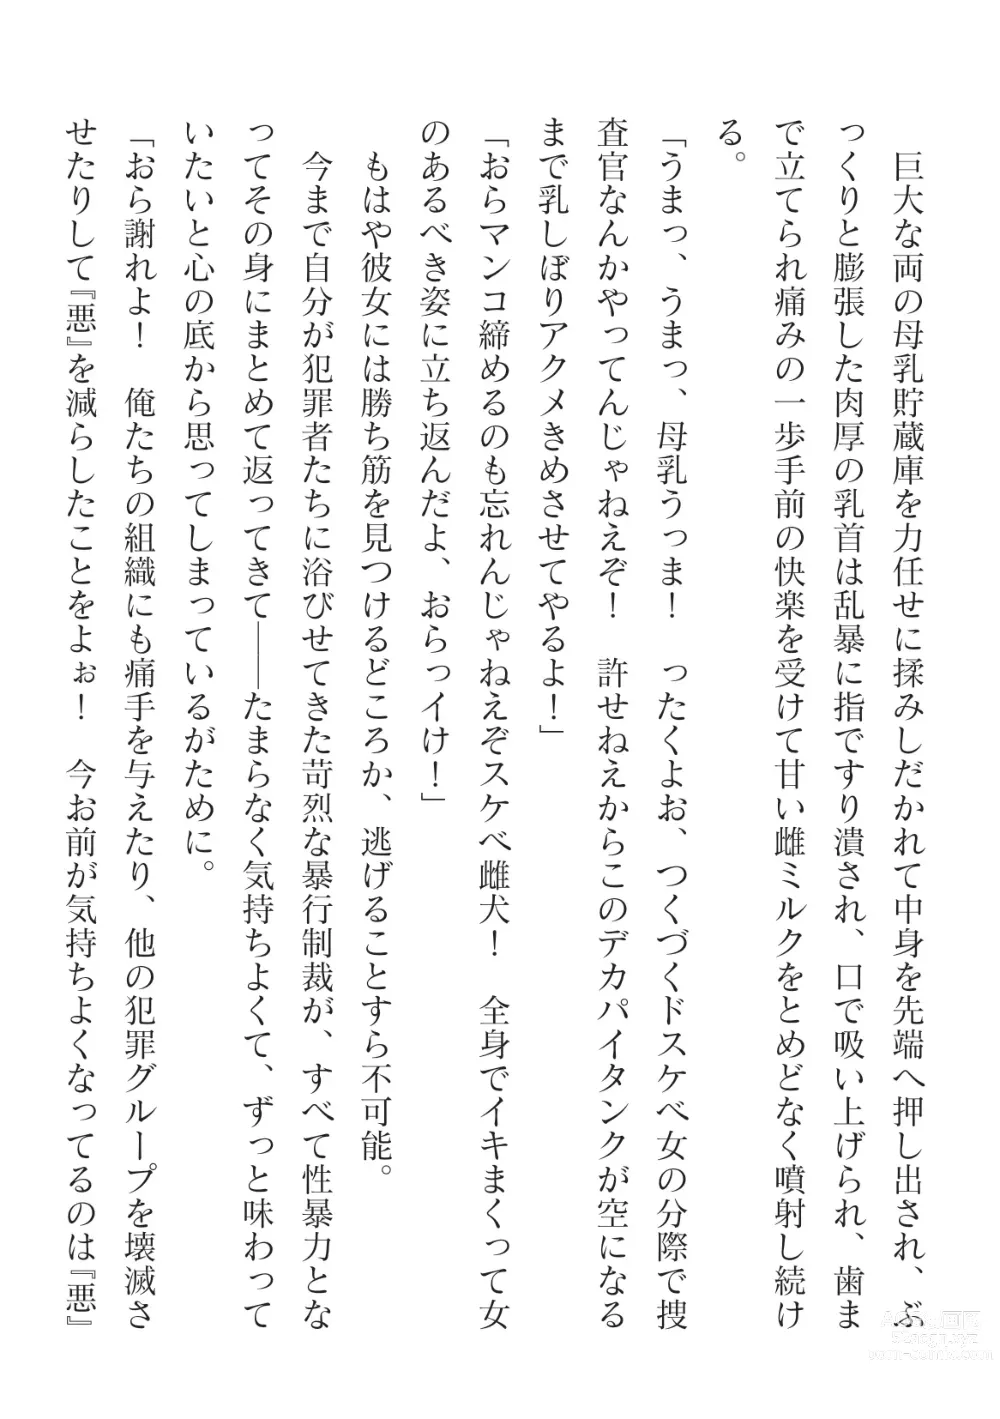 巨大な両の母乳貯蔵庫を力任せに揉みしだかれて中身を先端へ押し出され、ぶ
っくりと膨張した肉厚の乳首は乱暴に指ですり潰され、口で吸い上げられ、歯ま
で立てられ痛みの一歩手前の快楽を受けて甘い雌ミルクをとめどなく噴射し続け
る。
「うまっ、うまっ、母乳うっま！　ったくよお、つくづくドスケベ女の分際で捜
査官なんかやってんじゃねえぞ！　許せねえからこのデカパイタンクが空になる
まで乳しぼりアクメきめさせてやるよ！」
「おらマンコ締めるのも忘れんじゃねえぞスケベ雌犬！　全身でイキまくって女
のあるべき姿に立ち返んだよ、おらっイけ！」
もはや彼女には勝ち筋を見つけるどころか、逃げることすら不可能。
今まで自分が犯罪者たちに浴びせてきた苛烈な暴行制裁が、すべて性暴力とな
ってその身にまとめて返ってきて――たまらなく気持ちよくて、ずっと味わって
いたいと心の底から思ってしまっているがために。
「おら謝れよ！　俺たちの組織にも痛手を与えたり、他の犯罪グループを壊滅さ
せたりして『悪』を減らしたことをよぉ！　今お前が気持ちよくなってるのは『悪』